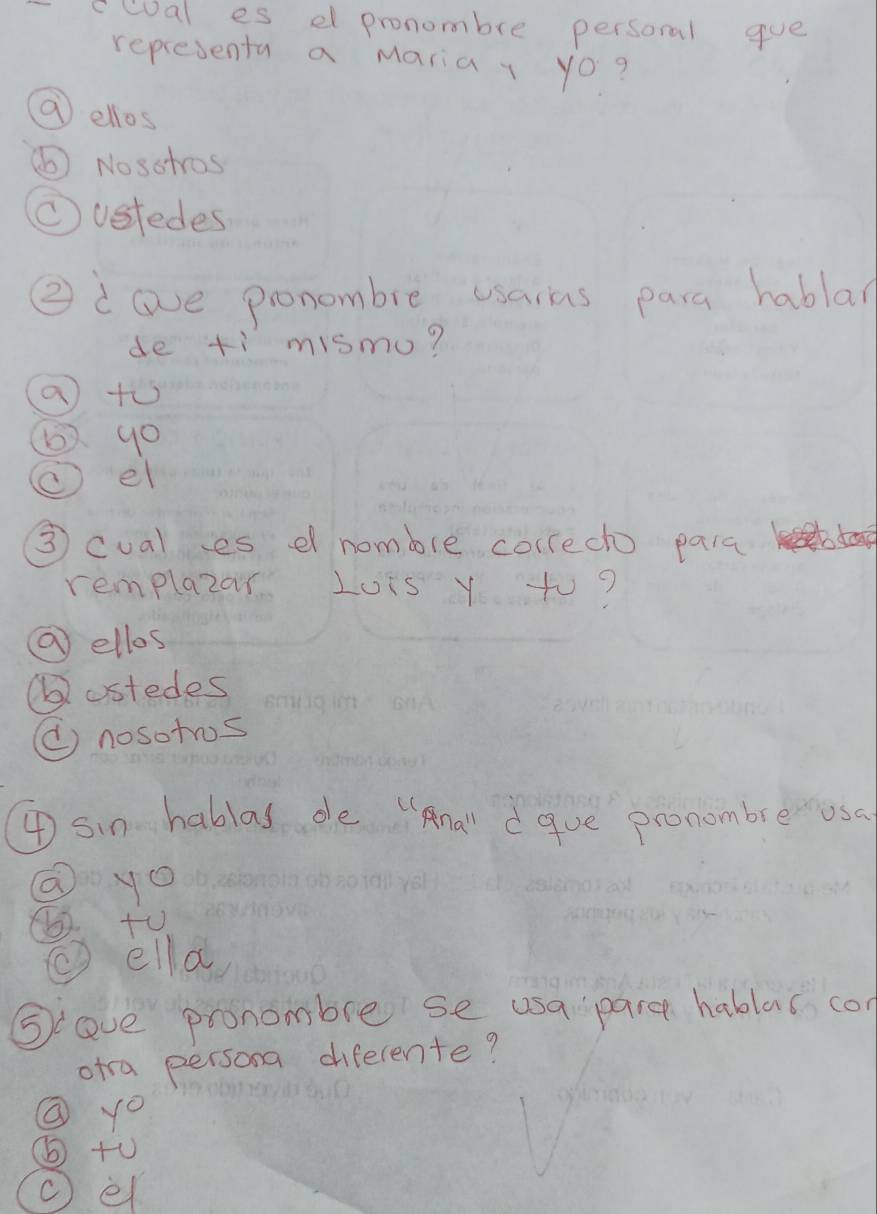 - ¿cual es el pronombre personal que
representa a Maria y yo?
ⓐ ellos
ⓑ Nosotros
ⓒ ustedes
② ¿Que pronombre usarias para hablar
de ti mismo?
ⓐ tu
ⓑ yo
ⓒ el
③ cual es el nombre correcto para
remplazar Luis y tu?
ⓐ ellos
ⓑ ustedes
ⓒ nosotros
④ sin hablas de "Ana" ¿que pronombre usa
ⓐ yo
ⓑ tu
ⓒ ella
⑤ ¿Que pronombre se usa para hablar con
otra persona diferente?
ⓐ yo
ⓑ tu
ⓒ él